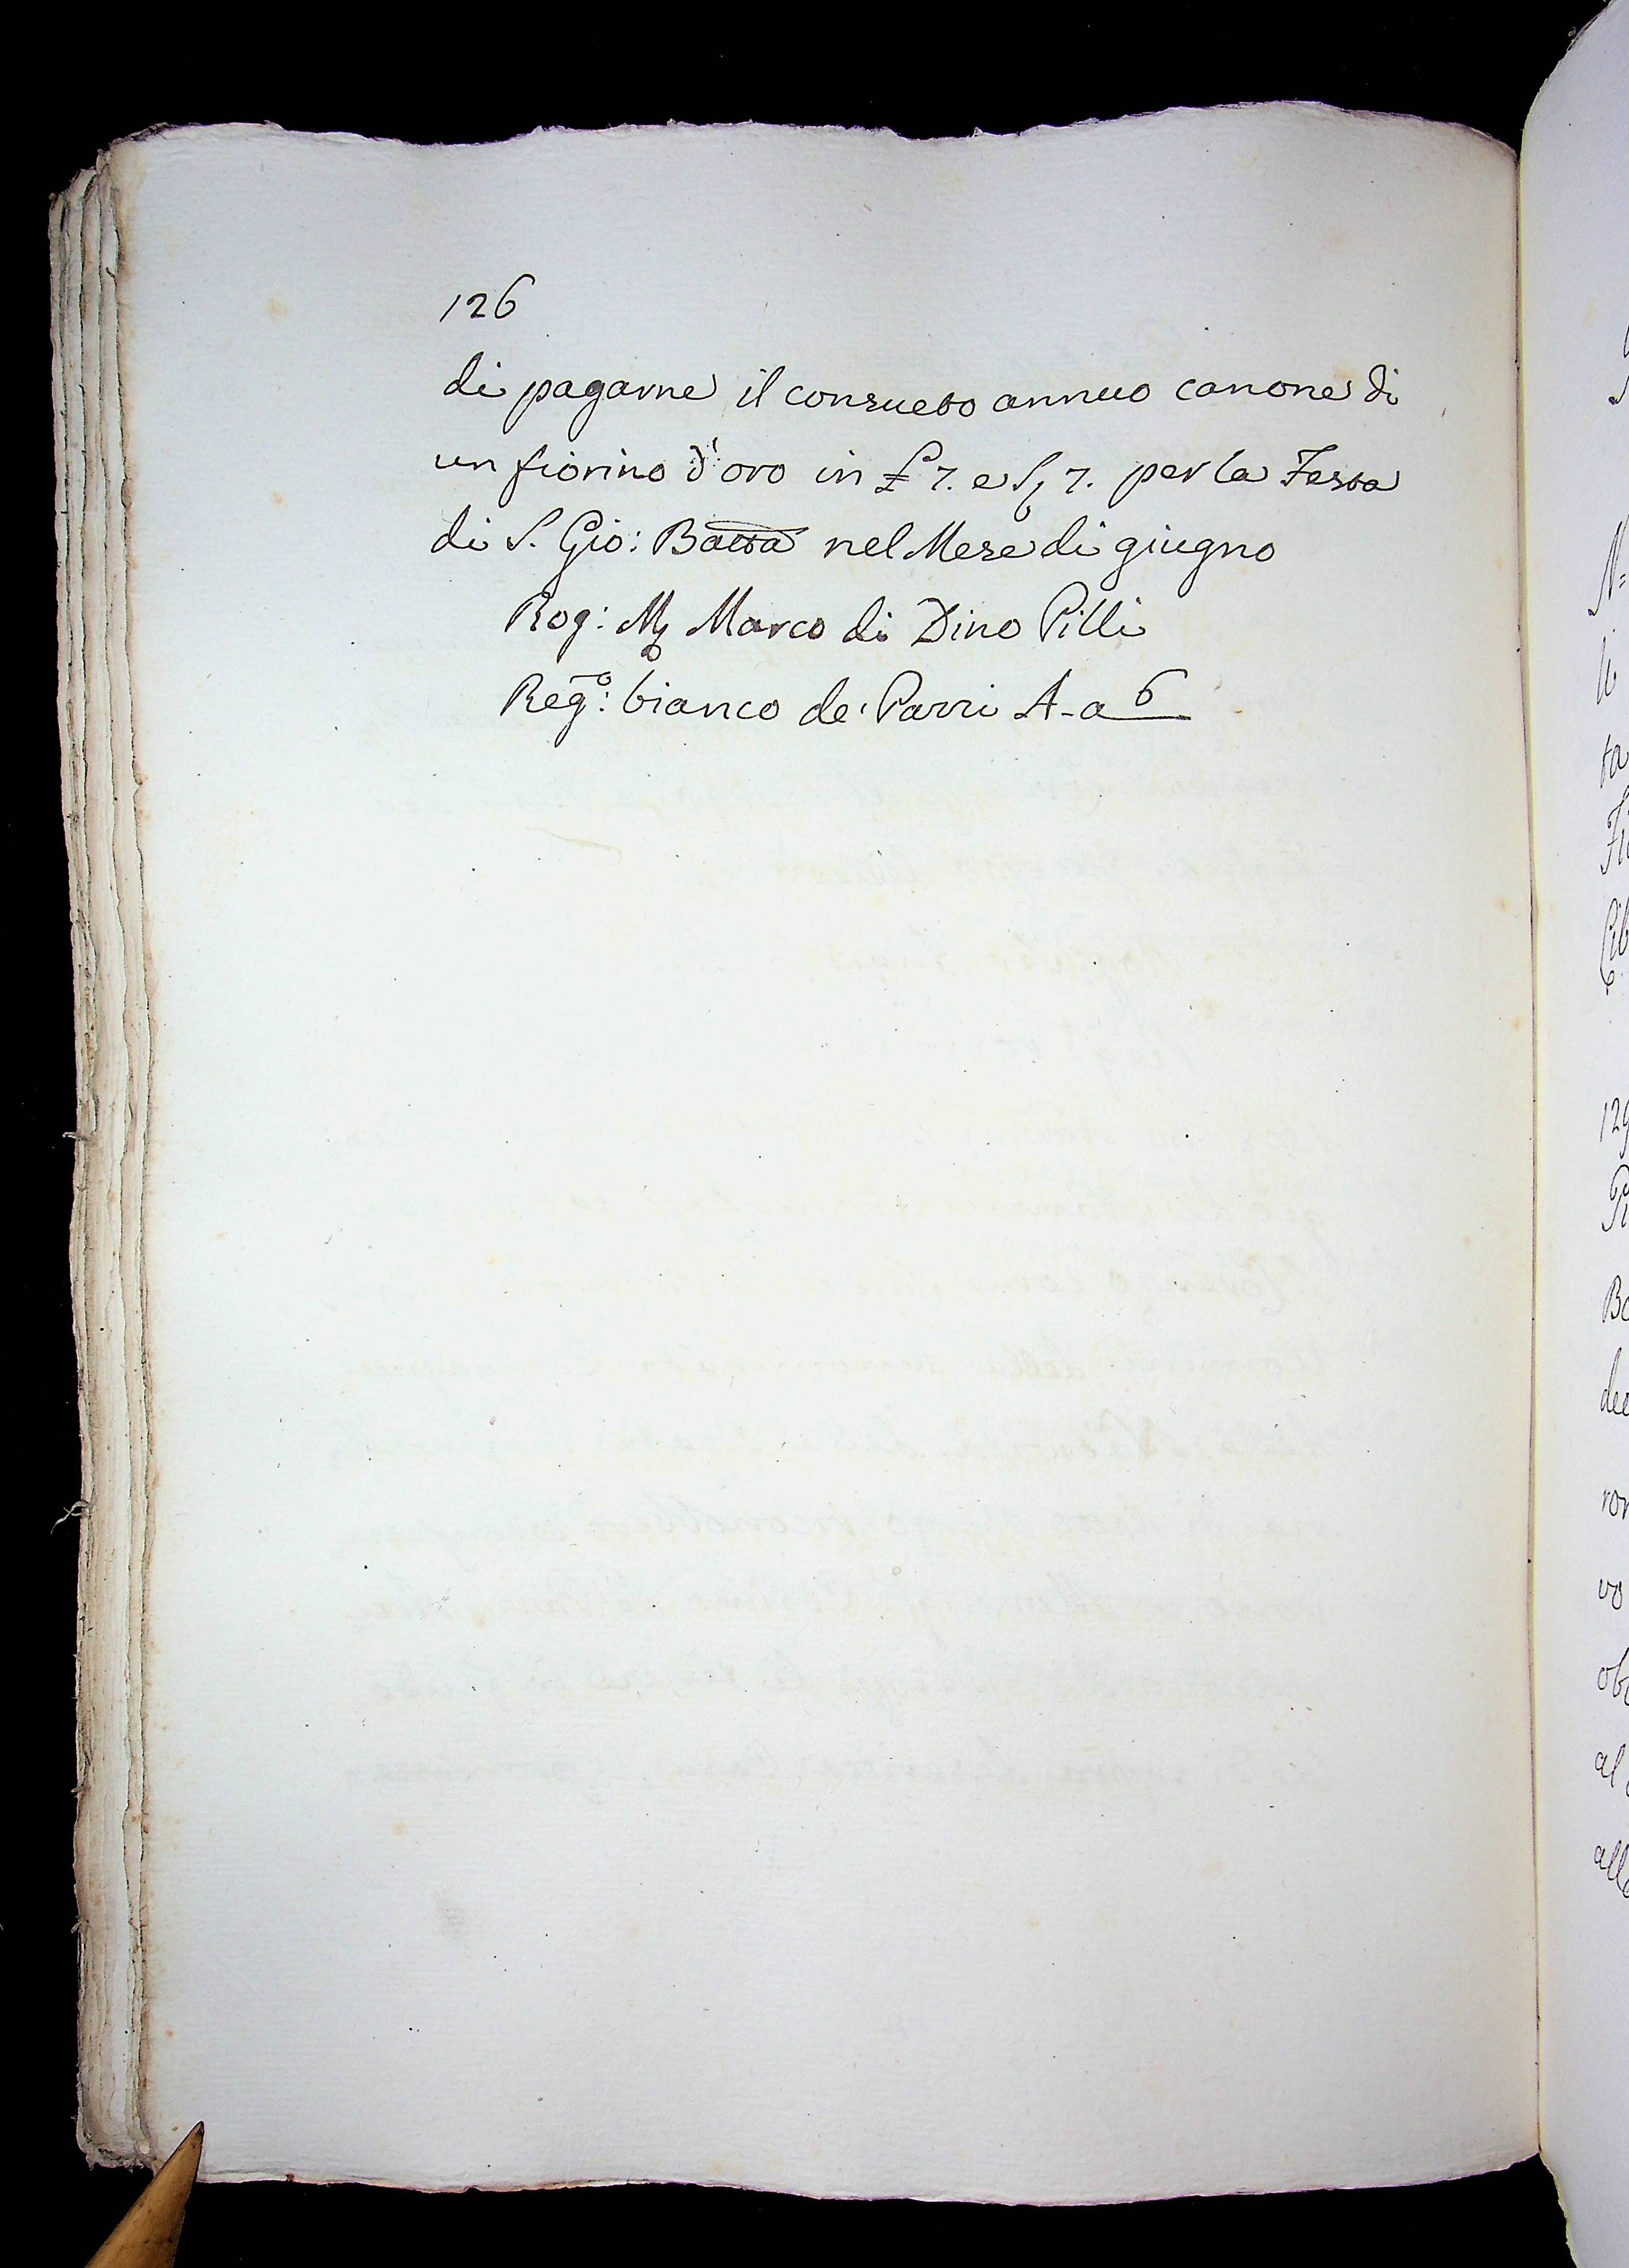 126
di pagarne il consueto annuo canone di
un fiorino d'oro in £ 7. e S. 7. per la Festa
di S. Gio: Batta nel Mese di giugno
Rog: M. Marco di Dino Pilli
Reg.º: bianco de' Parri A-a 6